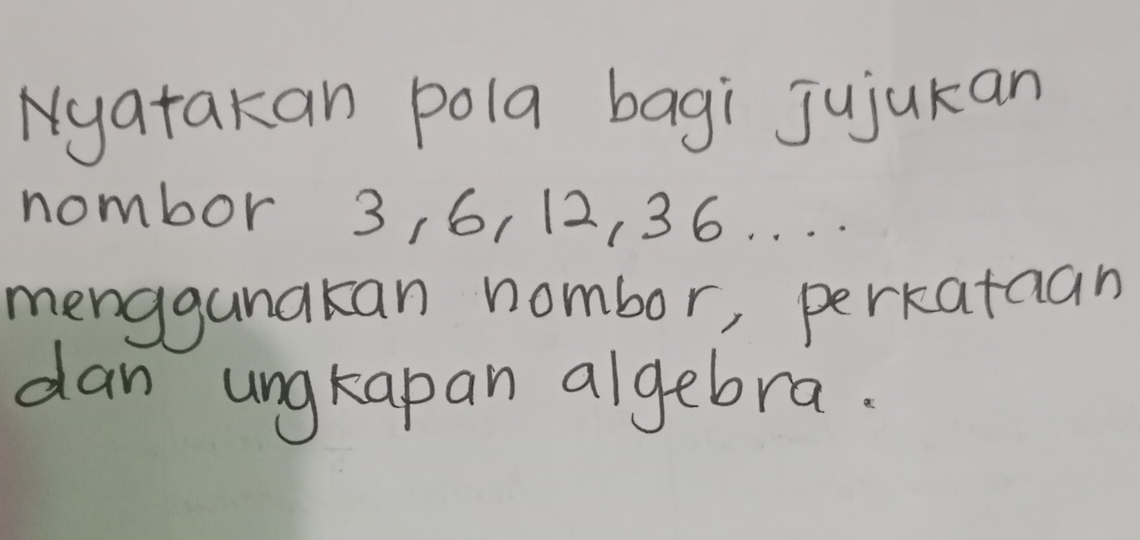 Nyatakan pola bagi jujukan
nombor 3, 6, 12, 36....
menggunakan nombor, perkataan
dan ungkapan algebra.